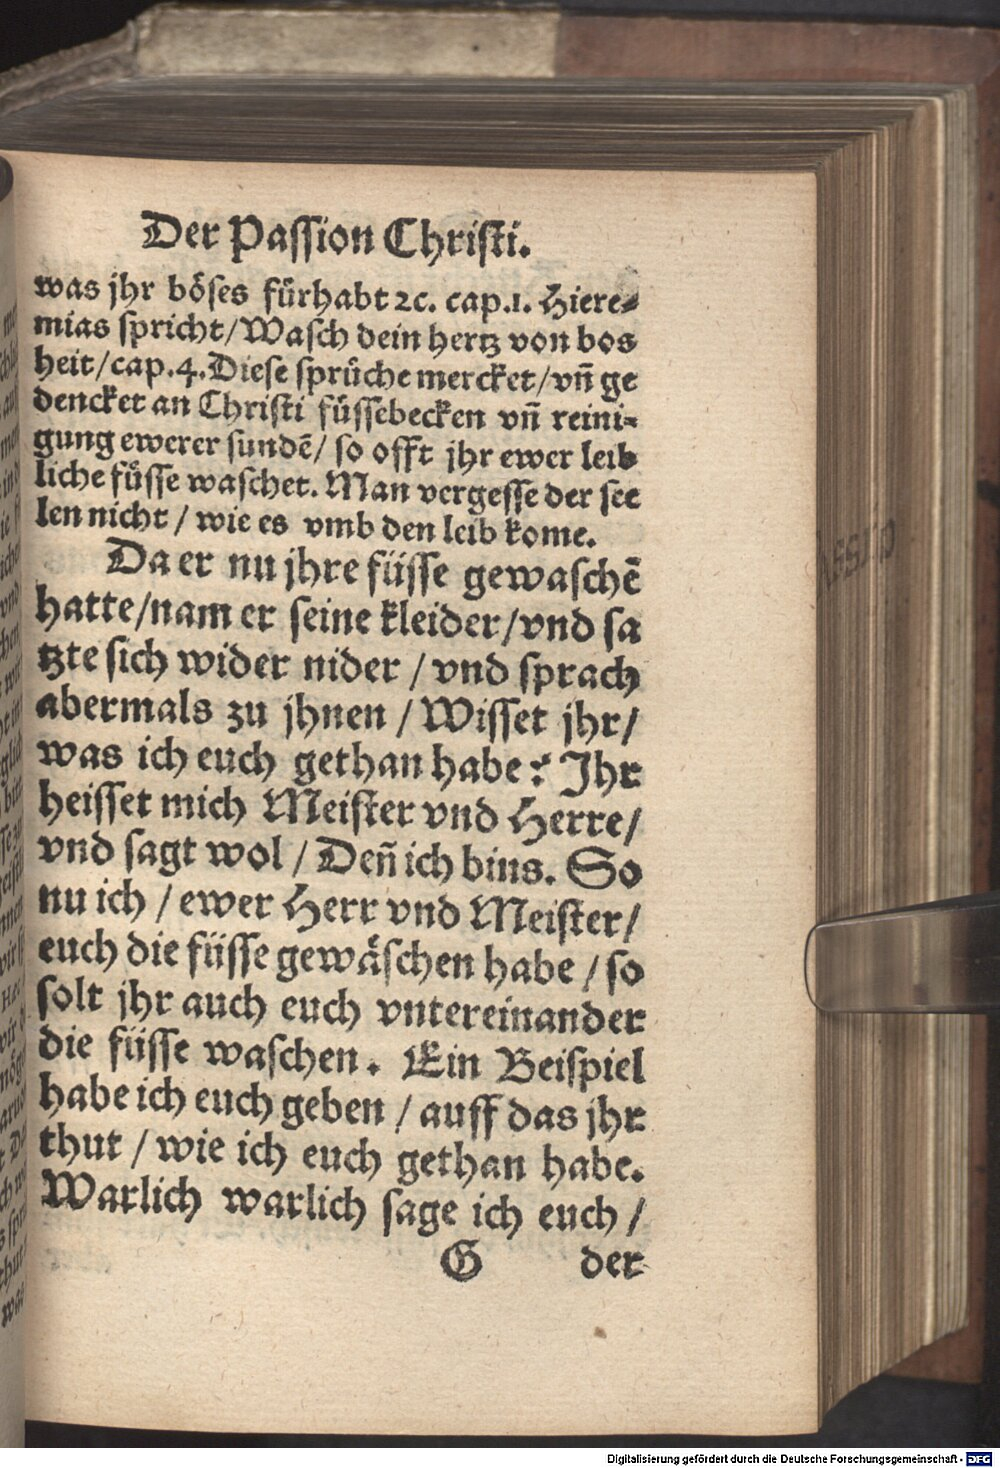 Der Passion Christi.
was jhr böses fürhabt ꝛc. cap.1. Hiere⸗
mias spricht/Wasch dein hertz von bos
heit/cap.4.Diese sprüche mercket/vñ ge
dencket an Christi füssebecken vñ reini⸗
gung ewerer sundē/ so offt jhr ewer leib
liche füsse waschet. Man vergesse der see
len nicht / wie es vmb den leib kome.
Da er nu jhre füsse gewaschē
hatte/nam er seine kleider/vnd sa
tzte sich wider nider / vnd sprach
abermals zu jhnen / Wisset jhr/
was ich euch gethan habe? Jhr
heisset mich Meister vnd Herre/
vnd sagt wol / Deñ ich bins. So
nu ich / ewer Herr vnd Meister/
euch die füsse gewäschen habe / so
solt jhr auch euch vntereinander
die füsse waschen. Ein Beispiel
habe ich euch geben / auff das jhr
thut / wie ich euch gethan habe.
Warlich warlich sage ich euch /
G der
Digitalisierung gefördert durch die Deutsche Forschungsgemeinschaft - DFG